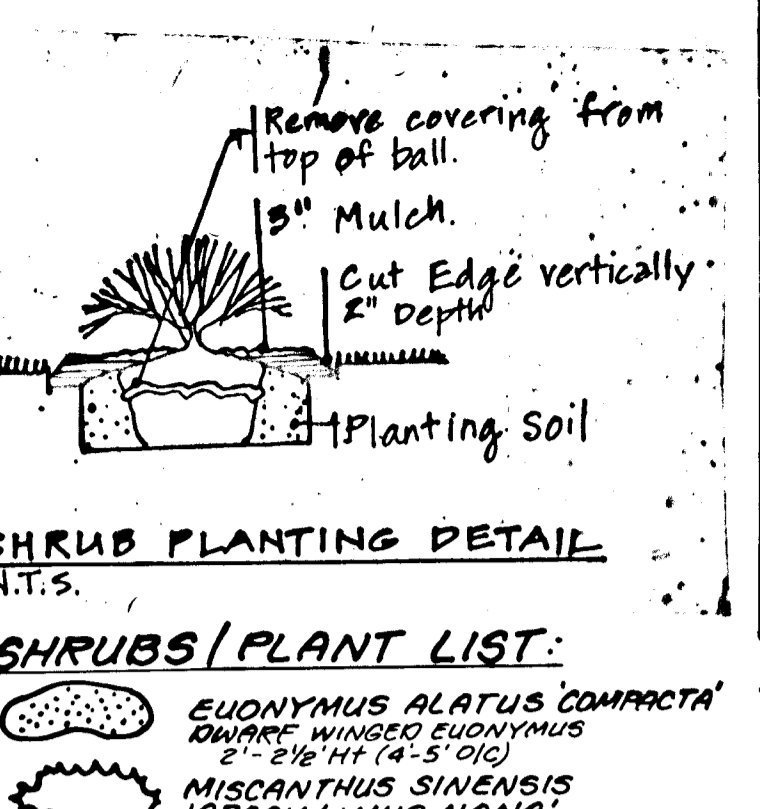 Remove covering from
top of ball.
3" Mulch.
Cut Edge vertically
2" Depth
Planting Soil
SHRUB PLANTING DETAIL
N.T.S.
SHRUBS/PLANT LIST:
EUONYMUS ALATUS 'COMPACTA'
DWARF WINGED EUONYMUS
2'-2½' Ht (4'-5' O/C)
MISCANTHUS SINENSIS